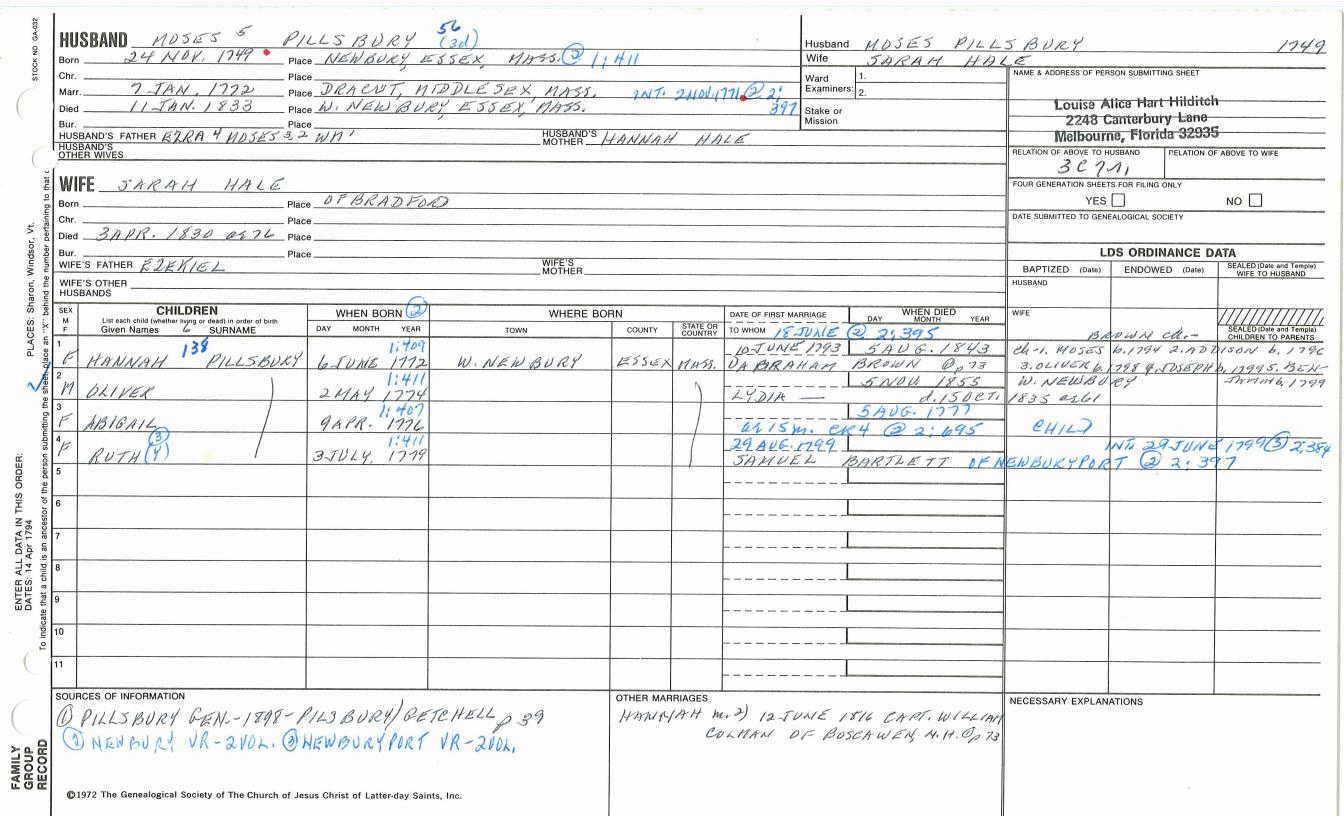 STOCK NO GA-032
HUSBAND MOSES 5 PILLSBURY 56 (3d)
Born 24 NOV. 1749 Place NEWBURY, ESSEX, MASS. ② 1:411
Chr. Place
Marr. 7 JAN. 1772 Place DRACUT, MIDDLESEX, MASS. INT: 2 NOV. 1771 ② 2:397
Died 11 JAN. 1833 Place W. NEWBURY, ESSEX, MASS.
Bur. Place
HUSBAND'S FATHER EZRA 4 MOSES 3,2 WM 1 HUSBAND'S MOTHER HANNAH HALE
HUSBAND'S OTHER WIVES
Husband MOSES PILLSBURY 1749
Wife SARAH HALE
Ward Examiners: 1.
2.
Stake or Mission
NAME & ADDRESS OF PERSON SUBMITTING SHEET
Louise Alice Hart Hilditch
2248 Canterbury Lane
Melbourne, Florida 32935
RELATION OF ABOVE TO HUSBAND RELATION OF ABOVE TO WIFE
FOUR GENERATION SHEETS FOR FILING ONLY
YES NO
DATE SUBMITTED TO GENEALOGICAL SOCIETY
WIFE SARAH HALE
Born Place OF BRADFORD
Chr. Place
Died 3 APR. 1830 ae 76 Place
Bur. Place
WIFE'S FATHER EZEKIEL WIFE'S MOTHER
WIFE'S OTHER HUSBANDS
LDS ORDINANCE DATA
BAPTIZED (Date) ENDOWED (Date) SEALED (Date and Temple) WIFE TO HUSBAND
HUSBAND
WIFE
SEALED (Date and Temple) CHILDREN TO PARENTS
SEX M F
CHILDREN
List each child (whether living or dead) in order of birth
Given Names 6 SURNAME
WHEN BORN ②
DAY MONTH YEAR
WHERE BORN
TOWN COUNTY STATE OR COUNTRY
DATE OF FIRST MARRIAGE
TO WHOM 18 JUNE ② 2:395
WHEN DIED
DAY MONTH YEAR
BROWN ch:-
1 F HANNAH 138 PILLSBURY 1:409 6 JUNE 1772 W. NEWBURY ESSEX MASS. 10 JUNE 1793 5 AUG. 1843
ABRAHAM BROWN p 73
ch-1. MOSES b. 1794 2. ADDISON b. 1796
3. OLIVER b. 1798 4. JOSEPH b. 1799 5. BEN-
2 M OLIVER 1:411 2 MAY 1774 5 NOV 1855
LYDIA — d. 15 OCT. 1835 ae 61
W. NEWBURY
3 F ABIGAIL 1:407 9 APR. 1776 5 AUG. 1777
ae 15 m. CR4 ② 2:695 CHILD
4 F RUTH ③ (4) 1:411 3 JULY, 1779 29 AUG. 1799 INT: 29 JUNE 1799 ③ 2,384
SAMUEL BARTLETT OF NEWBURYPORT ② 2:397
5
6
7
8
9
10
11
SOURCES OF INFORMATION
① PILLSBURY GEN.-1898-PILSBURY/GETCHELL p 39
② NEWBURY VR-2VOL. ③ NEWBURYPORT VR-2VOL.
OTHER MARRIAGES
HANNAH m. 2) 12 JUNE 1816 CAPT. WILLIAM
COLMAN OF BOSCAWEN, N.H. ① p 73
NECESSARY EXPLANATIONS
©1972 The Genealogical Society of The Church of Jesus Christ of Latter-day Saints, Inc.
PLACES: Sharon, Windsor, Vt.
ENTER ALL DATA IN THIS ORDER:
DATES: 14 Apr 1794
To indicate that a child is an ancestor of the person submitting the sheet, place an "X" behind the number pertaining to that c
FAMILY GROUP RECORD